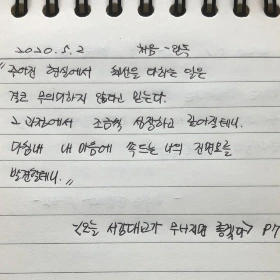 2020.5.2 처음-완독
"주어진 현실에서 최선을 다하는 일은
결코 무의미하지 않다고 믿는다.
그 과정에서 조금씩 성장하고 깊어질테니.
마침내 내 마음에 쏙 드는 나의 진면모를
발견할테니."
<오늘 서강대교가 무너지면 좋겠다> P7